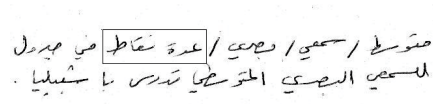 متوسط / سمعي / بصري / عدة نقاط في جدول
السمعي البصري المتوسطي تدرس باشبيليا .